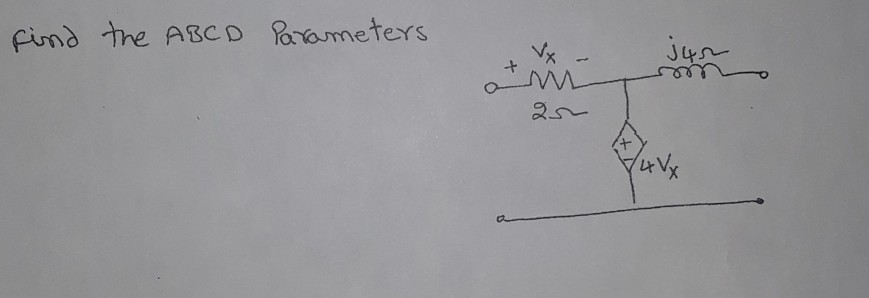 Find the ABCD Parameters
+ Vx -
j4Ω
2Ω
+
-
4Vx